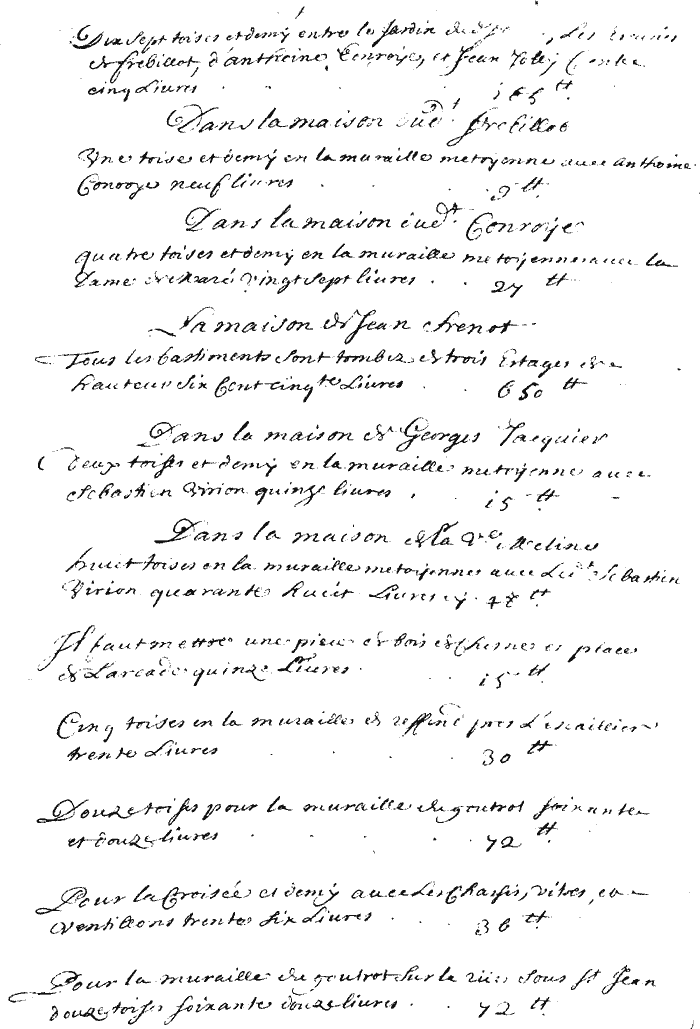 Dix sept toises et demÿ entre le Jardin dud Sr Les
de frebillot, d'anthoine Conroÿe, et Jean Jollÿ Cent
cinq Liures 105 tt
Dans la maison dud.t frebillot
Vne toise et demÿ en la muraille metoÿenne auec anthoine
Conroye neuf liures 9 tt
Dans la maison dud.t Conroÿe
quatre toises et demÿ en la muraille metoÿenne auec la
Dame de Maré vingt sept liures 27 tt
La maison de Jean frenot
Tous les bastiments sont tombez de trois Estages de
hauteur six Cent cinq.te Liures 650 tt
Dans la maison de Georges Jacquier
deux toises et demÿ en la muraille metoÿenne auec
Sebastien Virion quinze liures 15 tt
Dans la maison de la Ve Meline
huict toises en la muraille metoÿenne auec Led.t Sebastien
Virion quarante huict Liures cÿ 48 tt
Il faut mettre une piece de bois de Chesne en place
de L'arcade quinze Liures 15 tt
Cinq toises en la muraille de reffend pres L'escaillier
trente Liures 30 tt
Douze toises pour la muraille du goutrot soixante
et douze liures 72 tt
Pour la Croisée et demÿ auec Les Chassis, vitres, et
Ventillons trente six Liures 36 tt
Pour la muraille du goutrot sur la rüe sous St Jean
douze toises soixante douze liures 72 tt